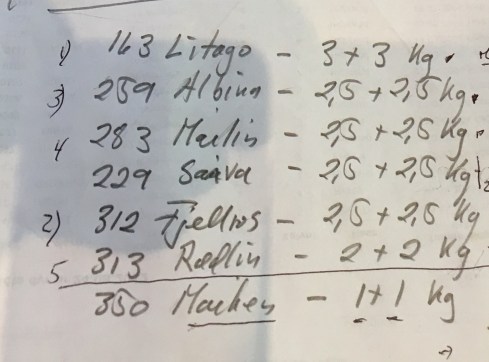 1) 163 Litago - 3 + 3 Kg.
3) 259 Albina - 2,5 + 2,5 Kg.
4 283 Mailin - 2,5 + 2,5 Kg.
229 - 2,5 + 2,5 Kg
2) 312 Fjellros - 2,5 + 2,5 Kg
5 313 Rødlin - 2 + 2 Kg
350 - 1 + 1 Kg